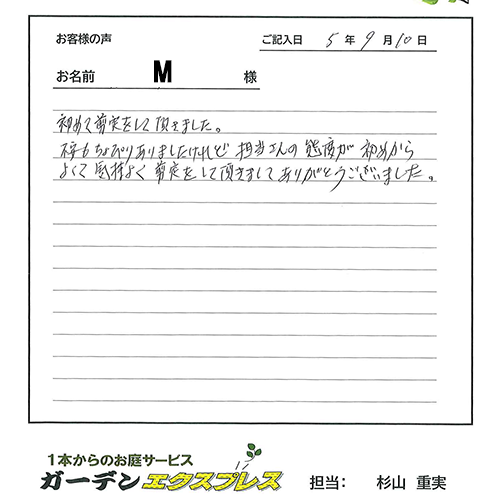 お客様の声
ご記入日 5年9月10日
お名前 M 様
初めて剪定をして頂きました。
不安もちょぴりありましたけれど 担当さんの 態度が 初めから
よくて 気持よく 剪定をして頂きまして ありがとうございました。
1本からのお庭サービス
ガーデンエクスプレス
担当: 杉山 重実